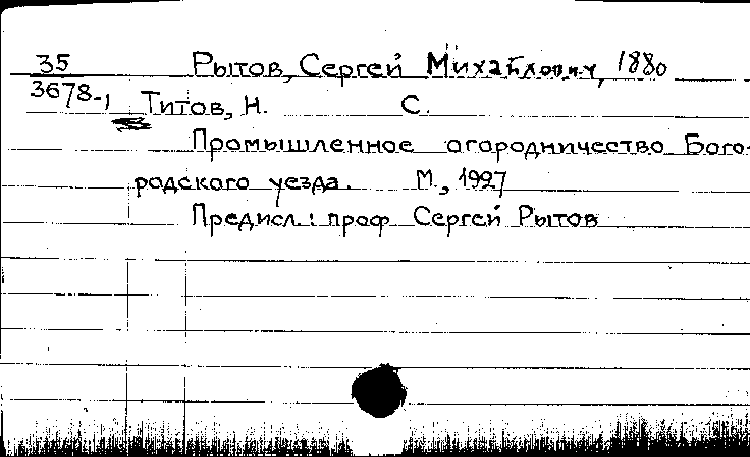 35 Рытов, Сергей Михайлович, 1880
3678-1 Титов, Н. С.
Промышленное огородничество Бого-
родского уезда. М., 1927
Предисл.: проф Сергей Рытов